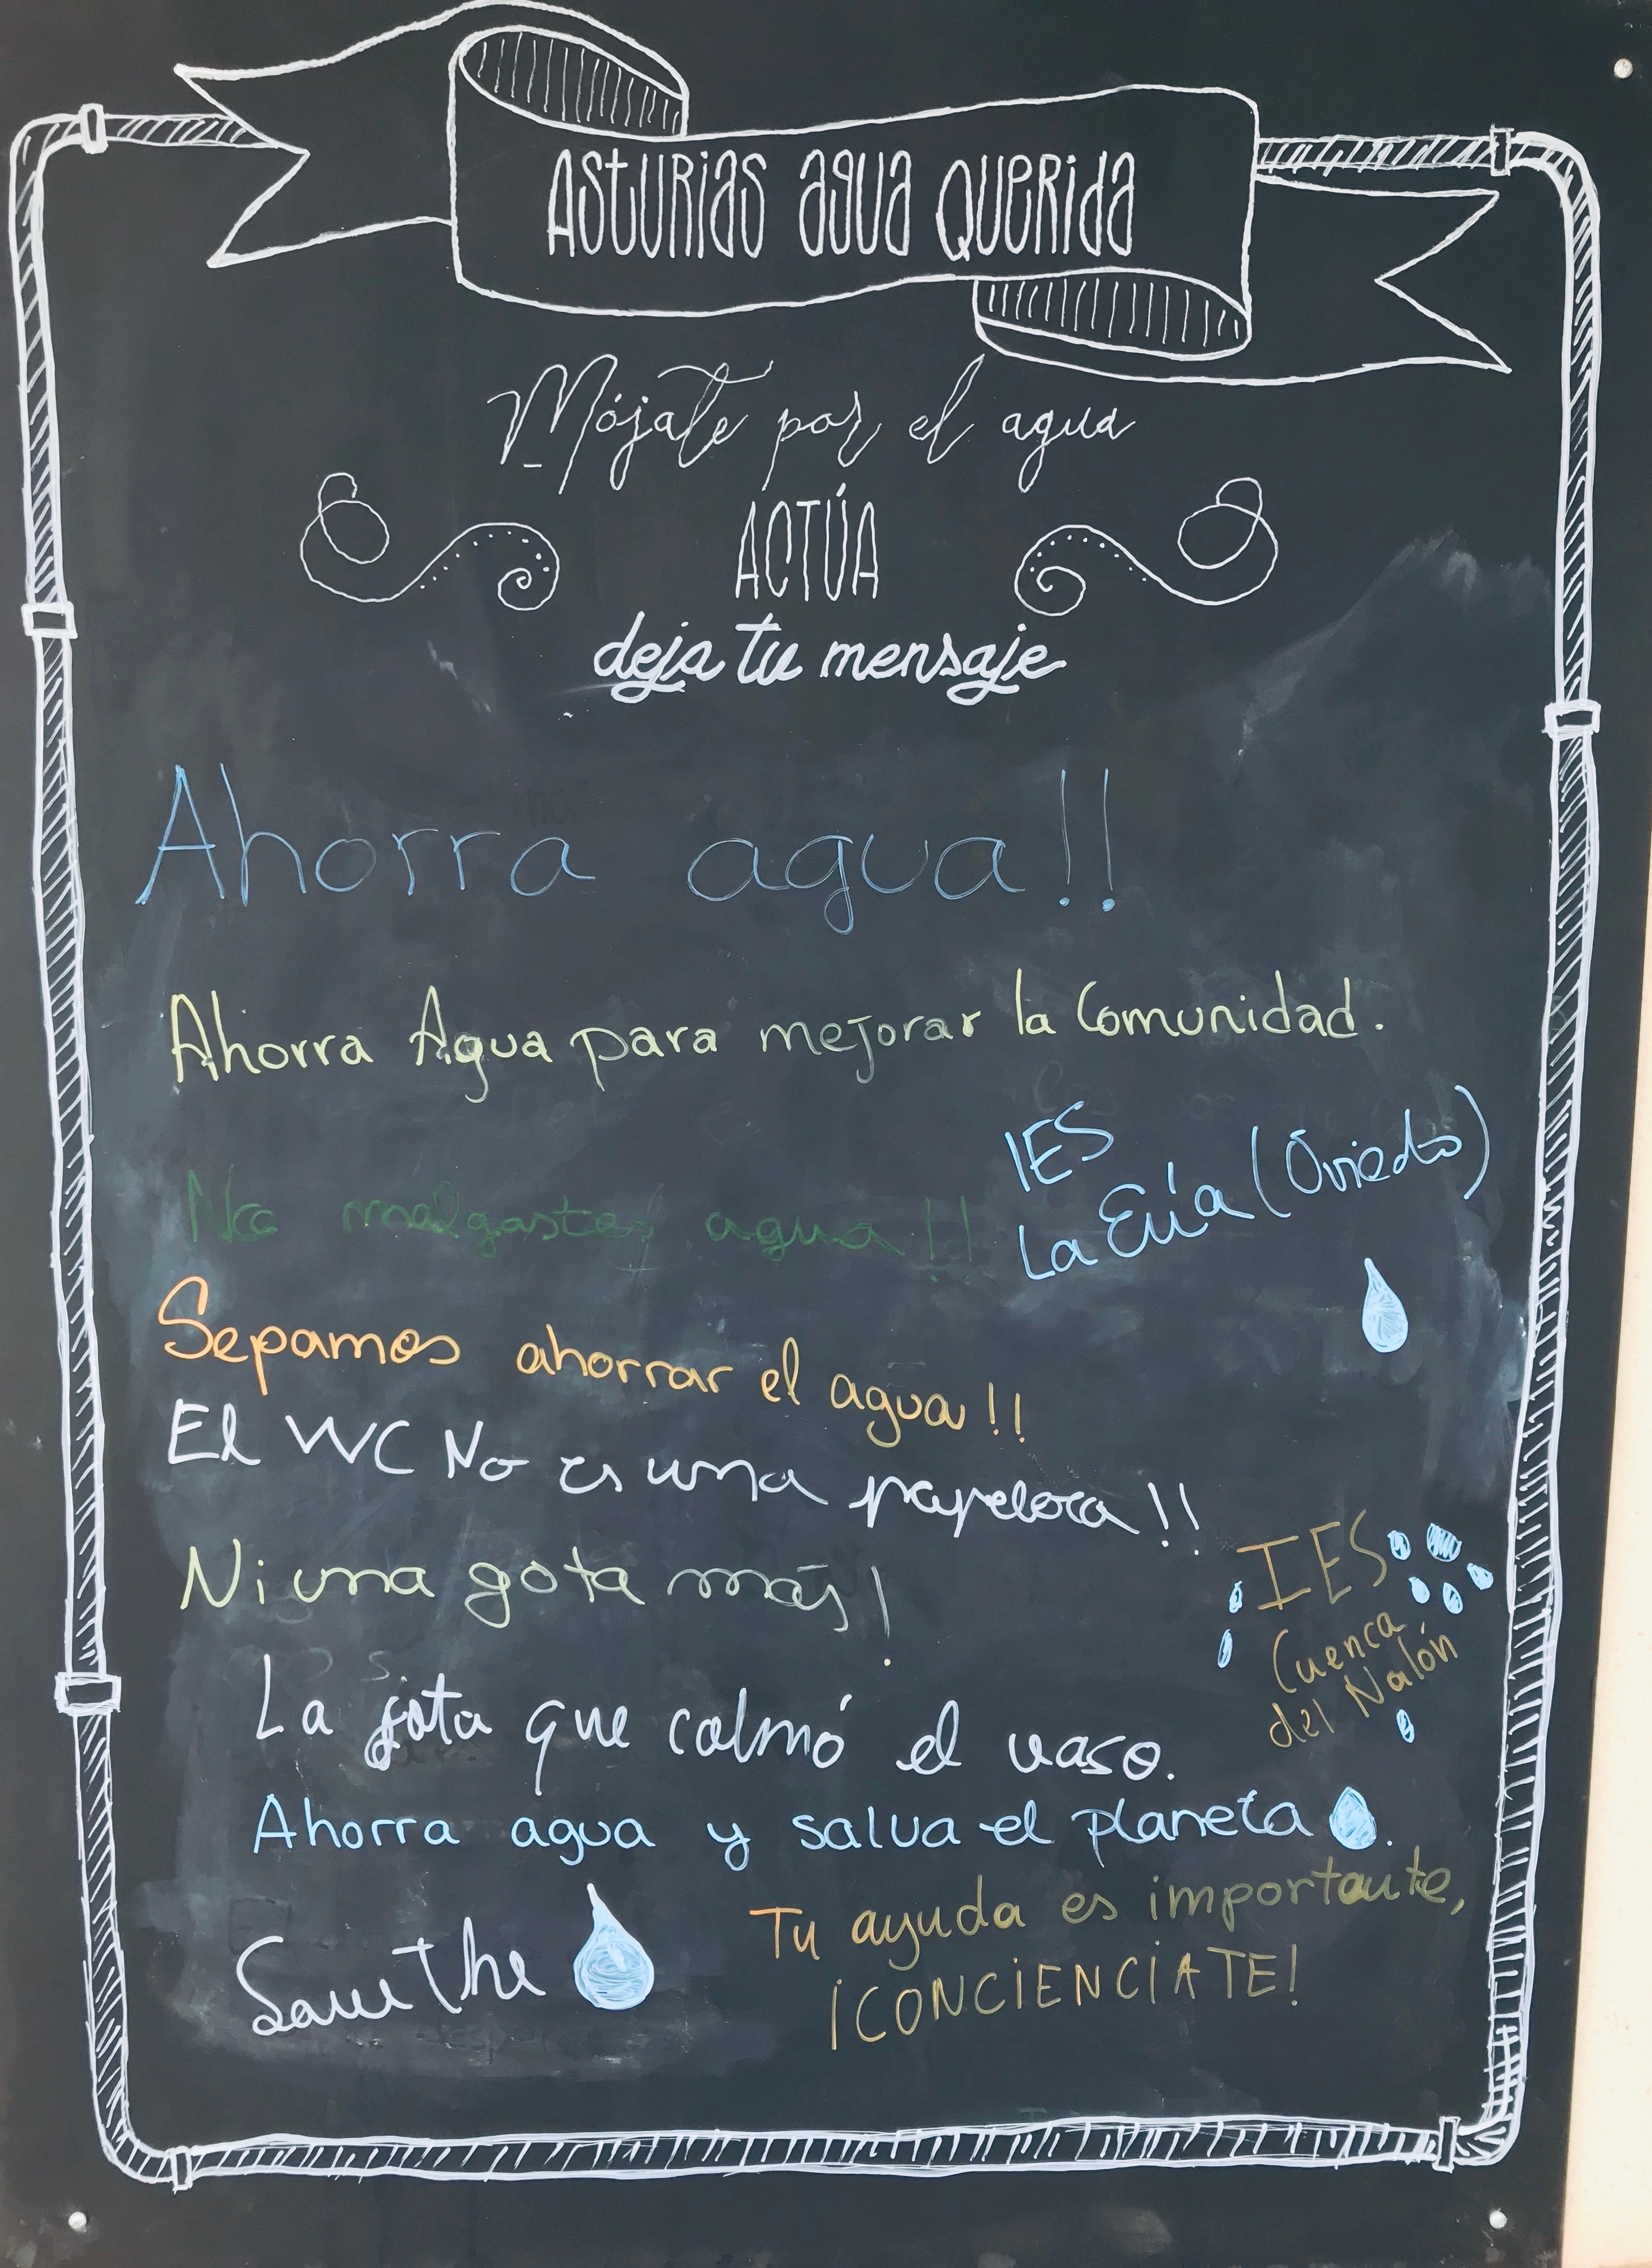 Asturias agua querida
Mójate por el agua
ACTÚA
deja tu mensaje
Ahorra agua!!
Ahorra Agua para mejorar la Comunidad.
IES
La Ería (Oviedo)
No malgastes agua!!
Sepamos ahorrar el agua!!
El WC No es una papelera!!
Ni una gota más!
IES
Cuenca
del Nalón
La gota que colmó el vaso.
Ahorra agua y salva el planeta.
Save the
Tu ayuda es importante,
¡CONCIENCIATE!